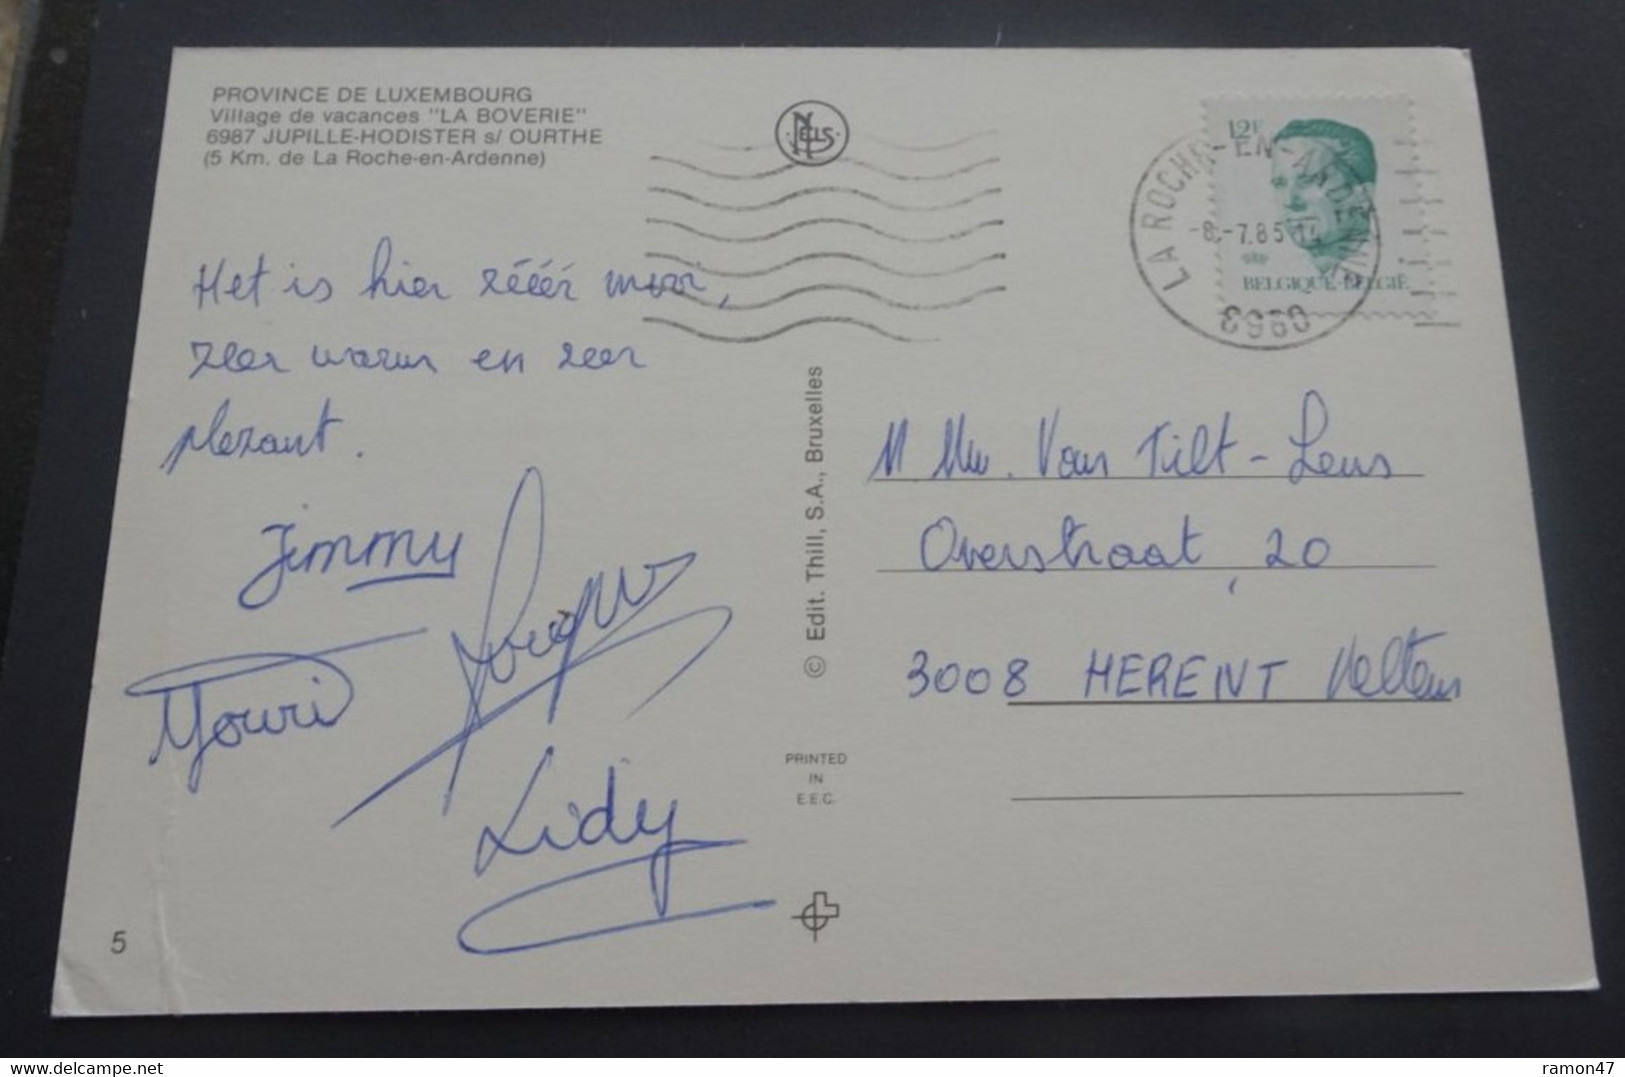 PROVINCE DE LUXEMBOURG
Village de vacances "LA BOVERIE"
6987 JUPILLE-HODISTER s/ OURTHE
(5 Km. de La Roche-en-Ardenne)
NELS
12F
BELGIQUE-BELGIË
LA ROCHE-EN-ARDENNE
-8.-7.85 14
6980
Het is hier zééér mooi,
zeer warm en zeer
plezant.
Jimmy
Youri
Lidy
© Edit. Thill, S.A., Bruxelles
PRINTED
IN
E.E.C.
M Mw. Van Tilt - Lens
Overstraat, 20
3008 HERENT Veltem
5
delcampe.net
ramon47